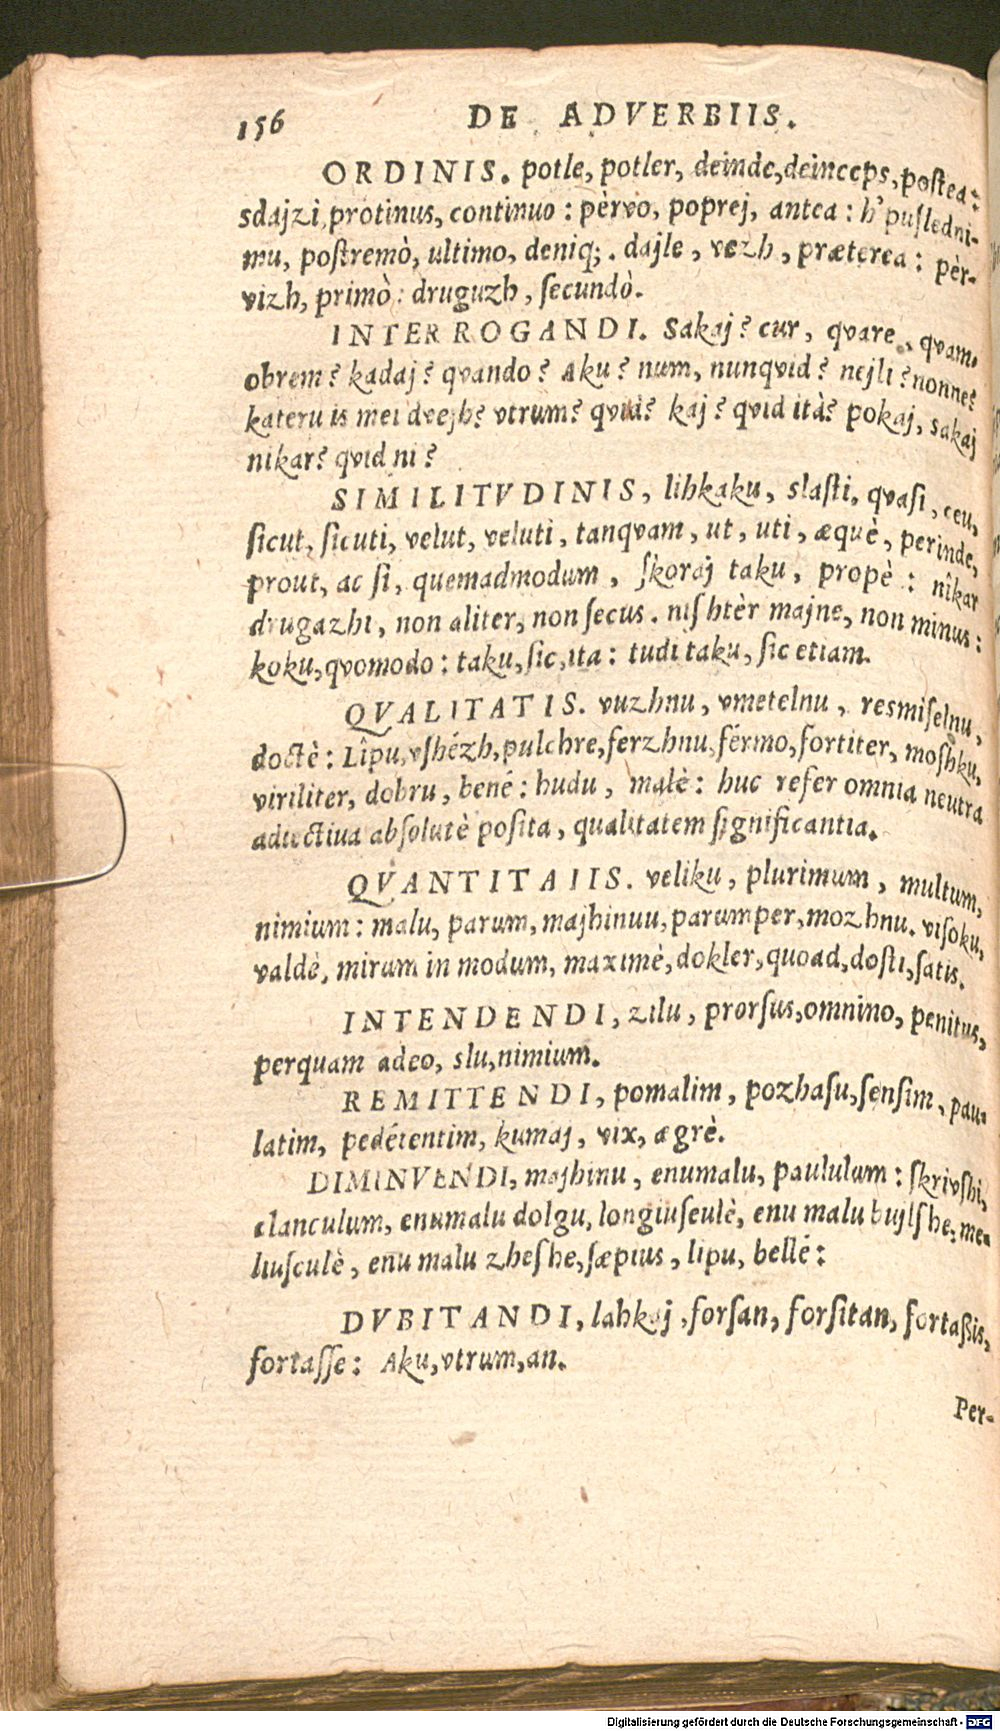 156 DE ADVERBIIS.
ORDINIS. potle, potler, deinde, deinceps, postea:
sdajzi, protinus, continuo: pèrvo, poprej, antea: h'puſledni-
mu, postremò, ultimo, deniq;. dajle, vezh, præterea: pèr-
vizh, primò: druguzh, ſecundò.
INTERROGANDI. Sakaj? cur, qvare, qvam,
obrem? kadaj? qvando? Aku? num, nunqvid? nejli? nonne?
kateru is mei dvejh? vtrum? qvid? kaj? qvid ità? pokaj, sakaj
nikar? qvid ni?
SIMILITVDINIS, lihkaku, slaſti, qvaſi, ceu,
ſicut, ſicuti, velut, veluti, tanqvam, ut, uti, æquè, perinde,
prout, ac ſi, quemadmodum, ſkoraj taku, propè: nîkar
drugazhi, non aliter, non ſecus. niſhtèr majne, non minus:
koku, qvomodo: taku, ſic, ita: tudi taku, ſic etiam.
QVALITATIS. vuzhnu, vmetelnu, resmiſelnu,
doctè: Lîpu, vſhézh, pulchre, ferzhnu, férmo, fortiter, moſhku,
viriliter, dobru, bené: hudu, malè: huc refer omnia neutra
adiectiua abſolutè poſita, qualitatem ſignificantia.
QVANTITATIS. veliku, plurimum, multum,
nimium: malu, parum, majhinuu, parumper, mozhnu. viſoku,
valdè, mirum in modum, maximè, dokler, quoad, doſti, ſatis.
INTENDENDI, zilu, prorſus, omnino, penitus,
perquam adeo, slu, nimium.
REMITTENDI, pomalim, pozhaſu, ſenſim, pau-
latim, pedétentim, kumaj, vix, ægrè.
DIMINVENDI, majhinu, enumalu, paululum: ſkrivſhi,
clanculum, enumalu dolgu, longiuſculè, enu malu bujlſhe, me-
liuſculè, enu malu zheſhe, ſæpius, lipu, bellé:
DVBITANDI, lahkaj, forſan, forſitan, fortaßis,
fortaſſe: Aku, vtrum, an.
Per-
Digitalisierung gefördert durch die Deutsche Forschungsgemeinschaft - DFG